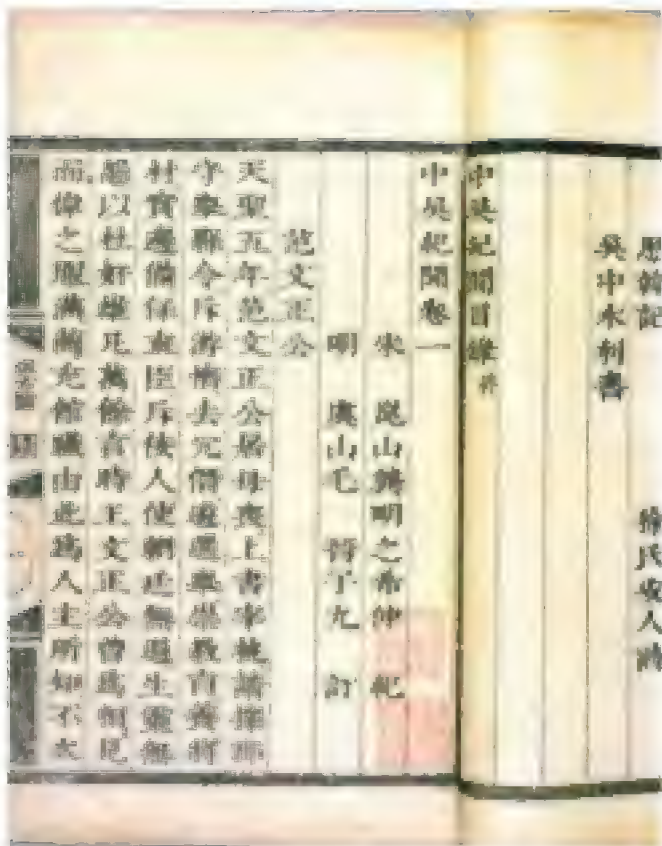 思韓記 徐氏安人詩
吳中水利書
中吳紀聞目錄終
中吳紀聞卷一
宋 崑山龔明之希仲 紀
明 虞山毛 晉子九 訂
范文正公
天聖五年范文正公居母喪上書宰執請擇郡
守舉縣令斥游惰去冗僭遴選舉崇教育養將
材實邊備保直臣斥佞人使朝廷無過生靈無
怨以杜奸雄凡萬餘言時王文正公曾爲相見
而偉之服滿薦充館職由此爲人主所知不久